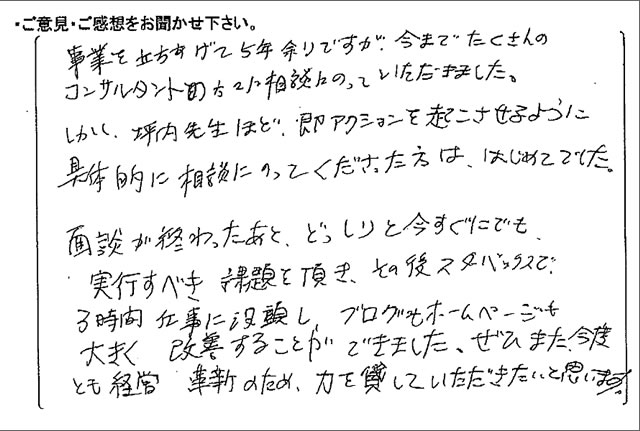 ・ご意見・ご感想をお聞かせ下さい。
事業を立ち上げて5年余りですが、今までたくさんの
コンサルタントの方々に相談にのっていただきました。
しかし、坪内先生ほど、即アクションを起こさせるように
具体的に相談にのってくださった方は、はじめてでした。
面談が終わったあと、どっしりと今すぐにでも、
実行すべき課題を頂き、その後スタバックスで、
3時間仕事に没頭し、ブログもホームページも
大きく改善することができました。ぜひまた、今度
とも経営革新のため、力を貸していただきたいと思います。